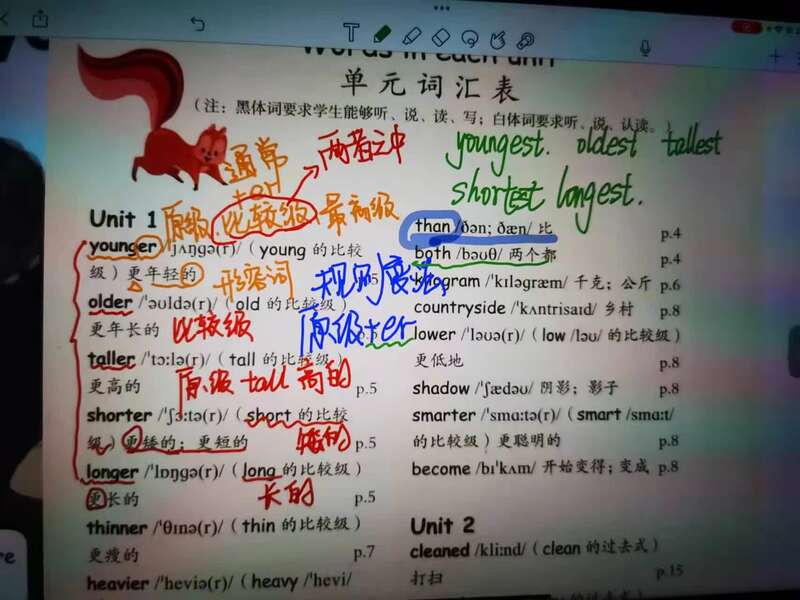 Words in each unit
单元词汇表
（注：黑体词要求学生能够听、说、读、写；白体词要求听、说、认读。）
通常
+er
两者之中
youngest. oldest tallest
shortest longest.
Unit 1
原级 比较级 最高级
younger /ˈjʌŋɡə(r)/（young 的比较
级）更年轻的 p.5
形容词
规则变法:
older /ˈəʊldə(r)/（old 的比较级）
更年长的
比较级
原级+er
taller /ˈtɔːlə(r)/（tall 的比较级）
更高的 p.5
原级 tall 高的
shorter /ˈʃɔːtə(r)/（short 的比较
级）更矮的；更短的 p.5
矮的
longer /ˈlɒŋɡə(r)/（long 的比较级）
更长的 p.5
长的
thinner /ˈθɪnə(r)/（thin 的比较级）
更瘦的 p.7
heavier /ˈheviə(r)/（heavy /ˈhevi/
than /ðən; ðæn/ 比 p.4
both /bəʊθ/ 两个都 p.4
kilogram /ˈkɪləɡræm/ 千克；公斤 p.6
countryside /ˈkʌntrisaɪd/ 乡村 p.8
lower /ˈləʊə(r)/（low /ləʊ/ 的比较级）
更低地 p.8
shadow /ˈʃædəʊ/ 阴影；影子 p.8
smarter /ˈsmɑːtə(r)/（smart /smɑːt/
的比较级）更聪明的 p.8
become /bɪˈkʌm/ 开始变得；变成 p.8
Unit 2
cleaned /kliːnd/（clean 的过去式）
打扫 p.15